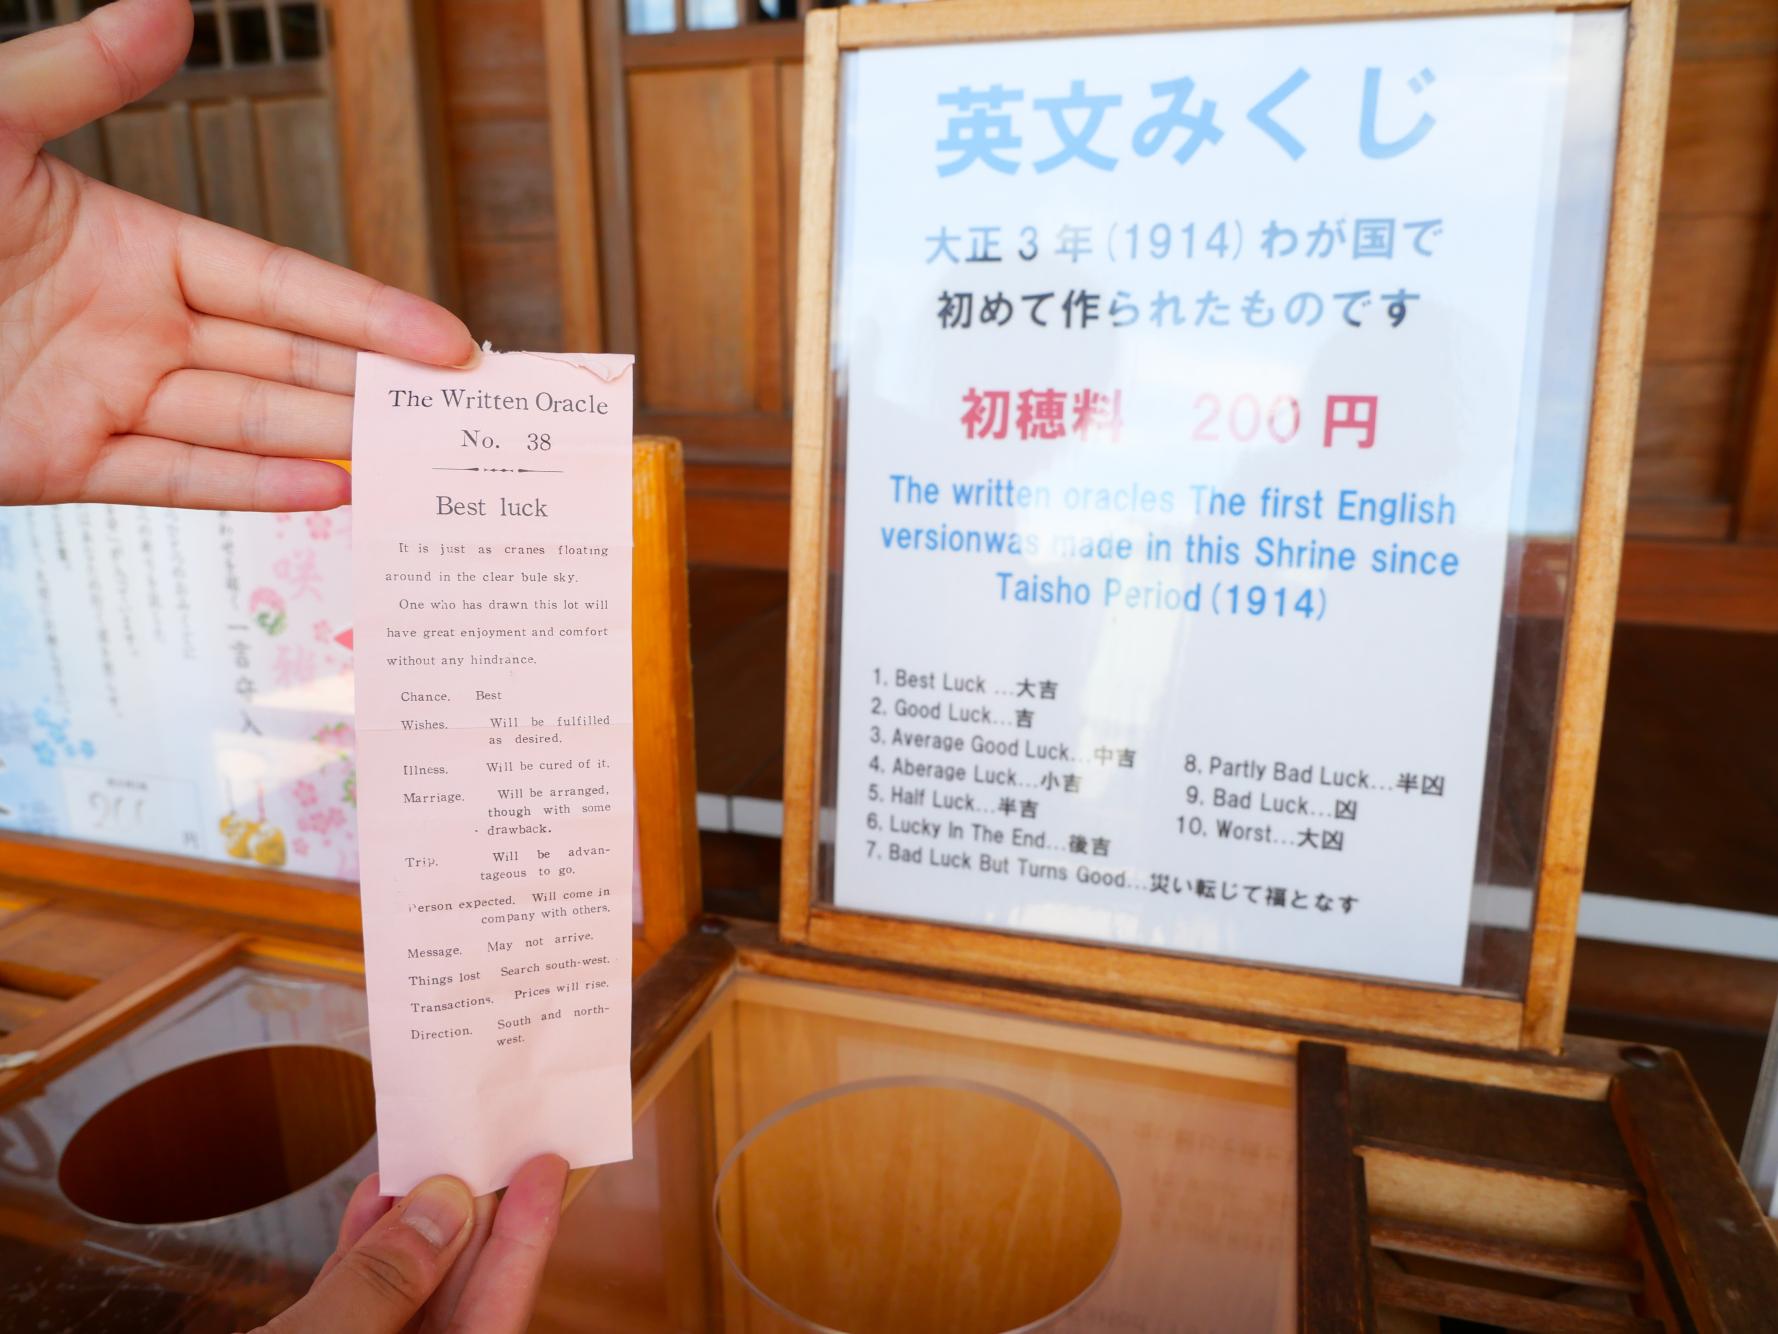 The Written Oracle
No. 38
Best luck
It is just as cranes floating
around in the clear bule sky.
One who has drawn this lot will
have great enjoyment and comfort
without any hindrance.
Chance. Best
Wishes. Will be fulfilled
as desired.
Illness. Will be cured of it.
Marriage. Will be arranged,
though with some
drawback.
Trip. Will be advan-
tageous to go.
Person expected. Will come in
company with others.
Message. May not arrive.
Things lost Search south-west.
Transactions. Prices will rise.
Direction. South and north-
west.
英文みくじ
大正3年(1914)わが国で
初めて作られたものです
初穂料 200円
The written oracles The first English
versionwas made in this Shrine since
Taisho Period(1914)
1. Best Luck ...大吉
2. Good Luck...吉
3. Average Good Luck...中吉
4. Aberage Luck...小吉
5. Half Luck...半吉
6. Lucky In The End...後吉
7. Bad Luck But Turns Good...災い転じて福となす
8. Partly Bad Luck...半凶
9. Bad Luck...凶
10. Worst...大凶
200円